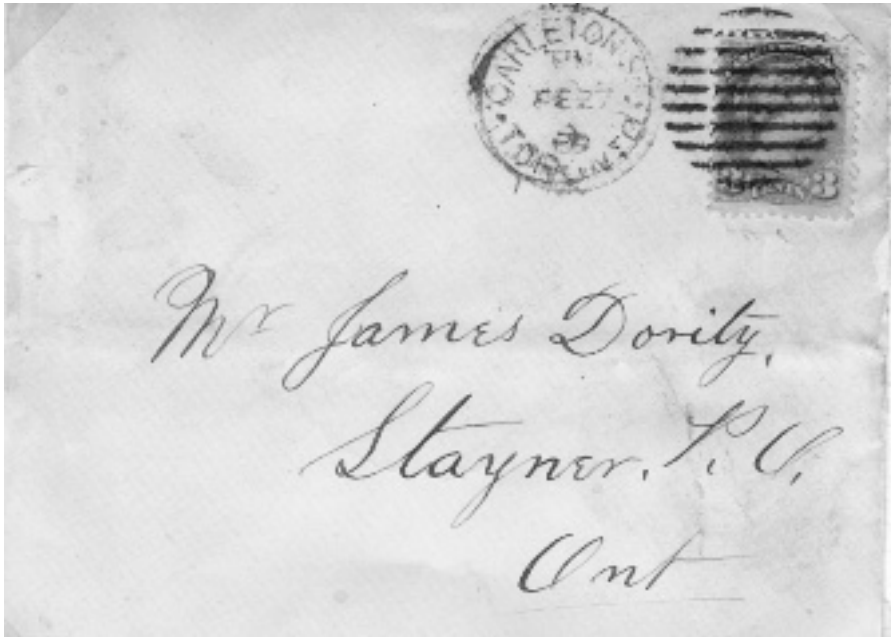 CARLETON ST
PM
FE 27
TORONTO
3 CENTS 3
Mr James Dority,
Stayner. P. O,
Ont